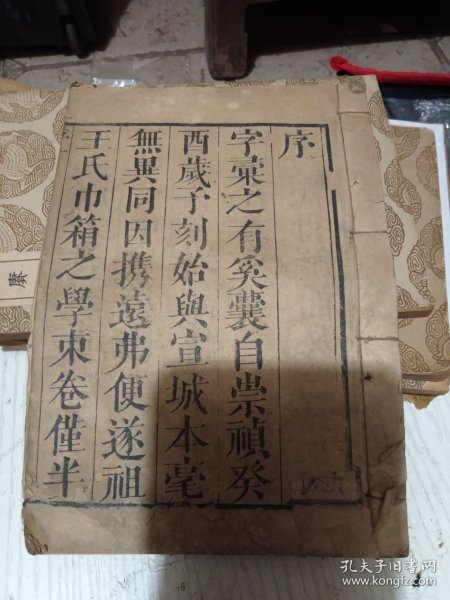 序
字彙之有奚囊自崇禎癸
酉歲予刻始與宣城本毫
無異同因携遠弗便遂祖
王氏巾箱之學束卷僅半
賡
孔夫子旧书网
www.kongfz.com